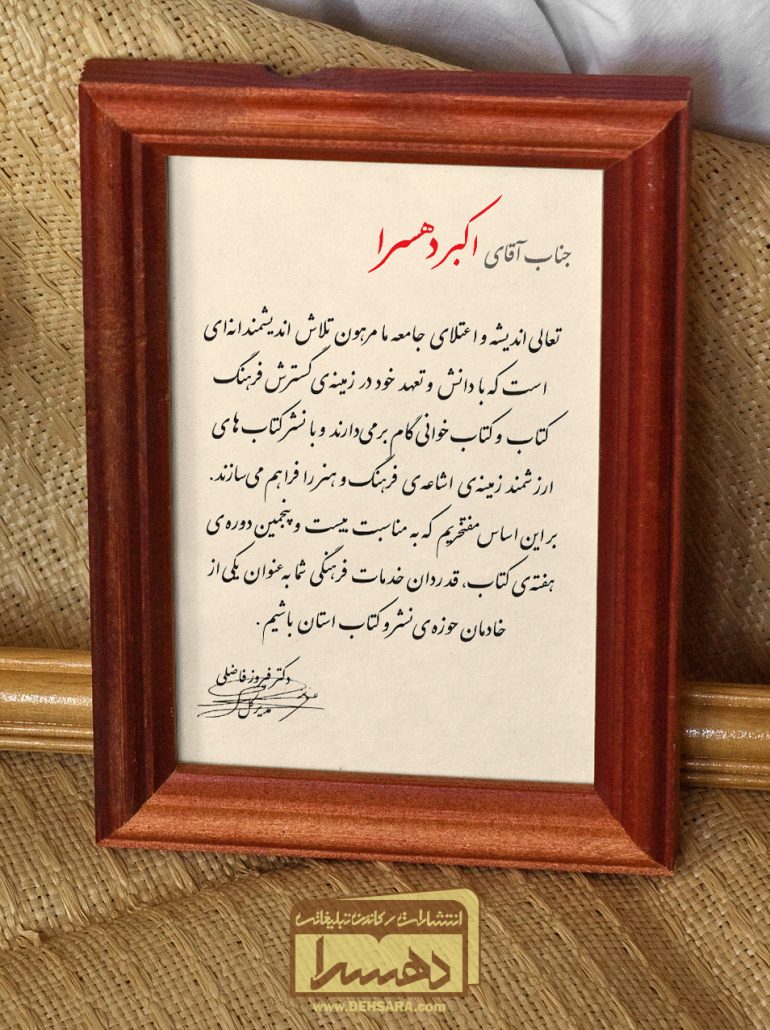 جناب آقای اکبر دهسرا
تعالی اندیشه و اعتلای جامعه ما مرهون تلاش اندیشمندانه‌ای
است که با دانش و تعهد خود در زمینه‌ی گسترش فرهنگ
کتاب و کتاب خوانی گام برمی‌دارند و با نشر کتاب های
ارزشمند زمینه‌ی اشاعه‌ی فرهنگ و هنر را فراهم می‌سازند.
بر این اساس مفتخریم که به مناسبت بیست و پنجمین دوره‌ی
هفته‌ی کتاب، قدردان خدمات فرهنگی شما به عنوان یکی از
خادمان حوزه‌ی نشر و کتاب استان باشیم.
دکتر فیروز فاضلی
مدیر کل
انتشارات / کانون تبلیغاتی
دهسرا
www.DEHSARA.com